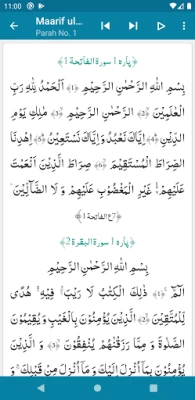 11:00
Maarif ul...
Parah No. 1
﴿پارہ 1 سورۃ الفاتحۃ 1﴾
بِسْمِ اللّٰهِ الرَّحْمٰنِ الرَّحِیْمِ ﴿1﴾ اَلْحَمْدُ لِلّٰهِ رَبِّ
الْعٰلَمِیْنَ ﴿2﴾ الرَّحْمٰنِ الرَّحِیْمِ ﴿3﴾ مٰلِكِ یَوْمِ
الدِّیْنِ ﴿4﴾ اِیَّاكَ نَعْبُدُ وَ اِیَّاكَ نَسْتَعِیْنُ ﴿5﴾ اِهْدِنَا
الصِّرَاطَ الْمُسْتَقِیْمَ ﴿6﴾ صِرَاطَ الَّذِیْنَ اَنْعَمْتَ
عَلَیْهِمْ ۙ غَیْرِ الْمَغْضُوْبِ عَلَیْهِمْ وَ لَا الضَّآلِّیْنَ ۠
﴿7 ع الفاتحۃ 1﴾
﴿پارہ 1 سورۃ البقرۃ 2﴾
بِسْمِ اللّٰهِ الرَّحْمٰنِ الرَّحِیْمِ
الٓمّٓ ﴿1﴾ ذٰلِكَ الْكِتٰبُ لَا رَیْبَ ۛ فِیْهِ ۛ هُدًی
لِّلْمُتَّقِیْنَ ﴿2﴾ الَّذِیْنَ یُؤْمِنُوْنَ بِالْغَیْبِ وَ یُقِیْمُوْنَ
الصَّلٰوةَ وَ مِمَّا رَزَقْنٰهُمْ یُنْفِقُوْنَ ﴿3﴾ وَ الَّذِیْنَ
یُؤْمِنُوْنَ بِمَاۤ اُنْزِلَ اِلَیْكَ وَ مَاۤ اُنْزِلَ مِنْ قَبْلِكَ ۚ وَ